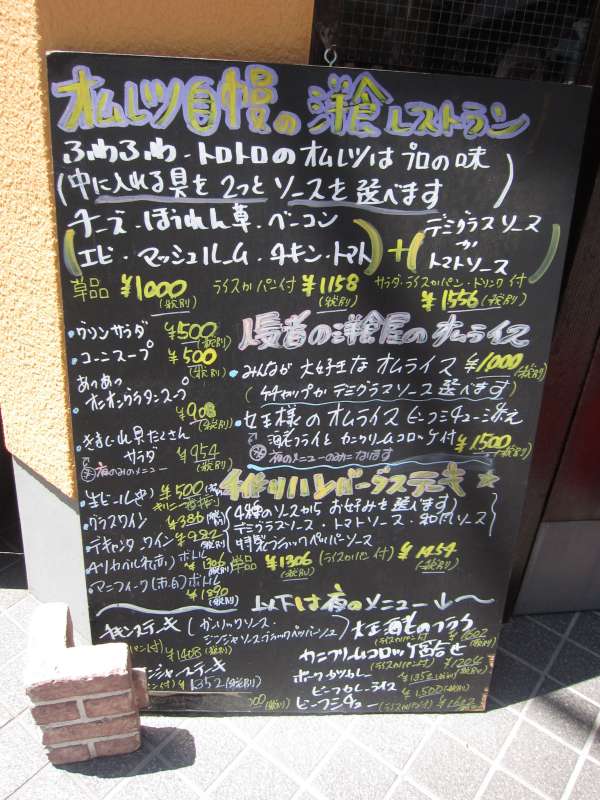 オムレツ自慢の洋食レストラン
ふわふわ・トロトロのオムレツはプロの味
(中に入れる具を2つと ソースを選べます)
(チーズ・ほうれん草・ベーコン
エビ・マッシュルーム・チキン・トマト)+(デミグラスソース か トマトソース)
単品 ¥1000(税別) ライスかパン付 ¥1158(税別) サラダ・ライスかパン・ドリンク付 ¥1556(税別)
・グリンサラダ ¥500(税別)
・コーンスープ ¥500(税別)
・あつあつ
オニオングラタンスープ
¥908(税別)
サラダ ¥954(税別)
夜のみのメニュー
・生ビール(中) ¥500
・グラスワイン ¥386(税別)
・デキャンタワイン ¥982(税別)
ボトル ¥1306(税別)
・マニフィーク(赤・白)ボトル
¥1890(税別)
の洋食屋のオムライス
・みんなが大好きなオムライス ¥1000(税別)
(ケチャップかデミグラスソース選べます)
・女王様のオムライス ビーフシチューソース添え
海老フライとカニクリームコロッケ付 ¥1500(税別)
夜のメニューのみになります
手作りハンバーグステーキ☆
(4種のソースからお好みを選べます
デミグラスソース・トマトソース・和風ソース
特製ブラックペッパーソース
単品 ¥1306(税別) (ライスかパン付) ¥1454(税別)
以下は夜のメニュー↓〜
チキンステーキ(ガーリックソース・
ジンジャーソース・ブラックペッパーソース)
パン付) ¥1408(税別)
ンジャーステーキ
ン付) ¥1352(税別)
大王海老のフライ
(ライスかパン付)
カニクリームコロッケ
¥1204(税別)
ポークカツカレー ¥1352(税別)
ビーフカレーライス ¥1500(税別)
ビーフシチュー(ライスかパン付)